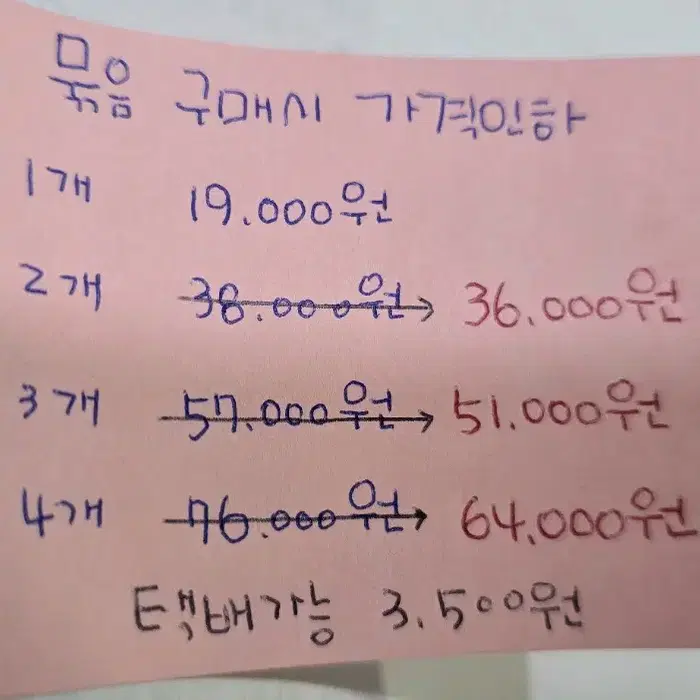 묶음 구매시 가격인하
1개 19.000원
2개 38.000원 → 36.000원
3개 57.000원 → 51.000원
4개 76.000원 → 64.000원
택배가능 3.500원